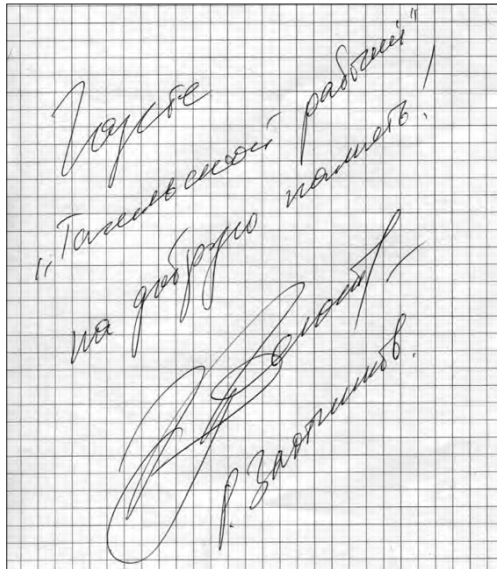 Газете
"Тагильский рабочий"
на добрую память!
Р.